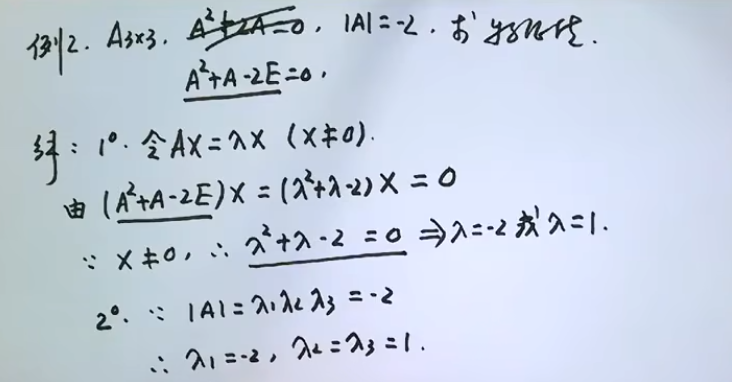 例2. A₃ₓ₃. A²+2A=0, |A|=-2. 求特征值.
A²+A-2E=0,
解: 1°. 令AX=λX (X≠0).
由 (A²+A-2E)X=(λ²+λ-2)X=0
∵ X≠0, ∴ λ²+λ-2=0 ⇒λ=-2或λ=1.
2°. ∵ |A|=λ₁λ₂λ₃=-2
∴ λ₁=-2, λ₂=λ₃=1.